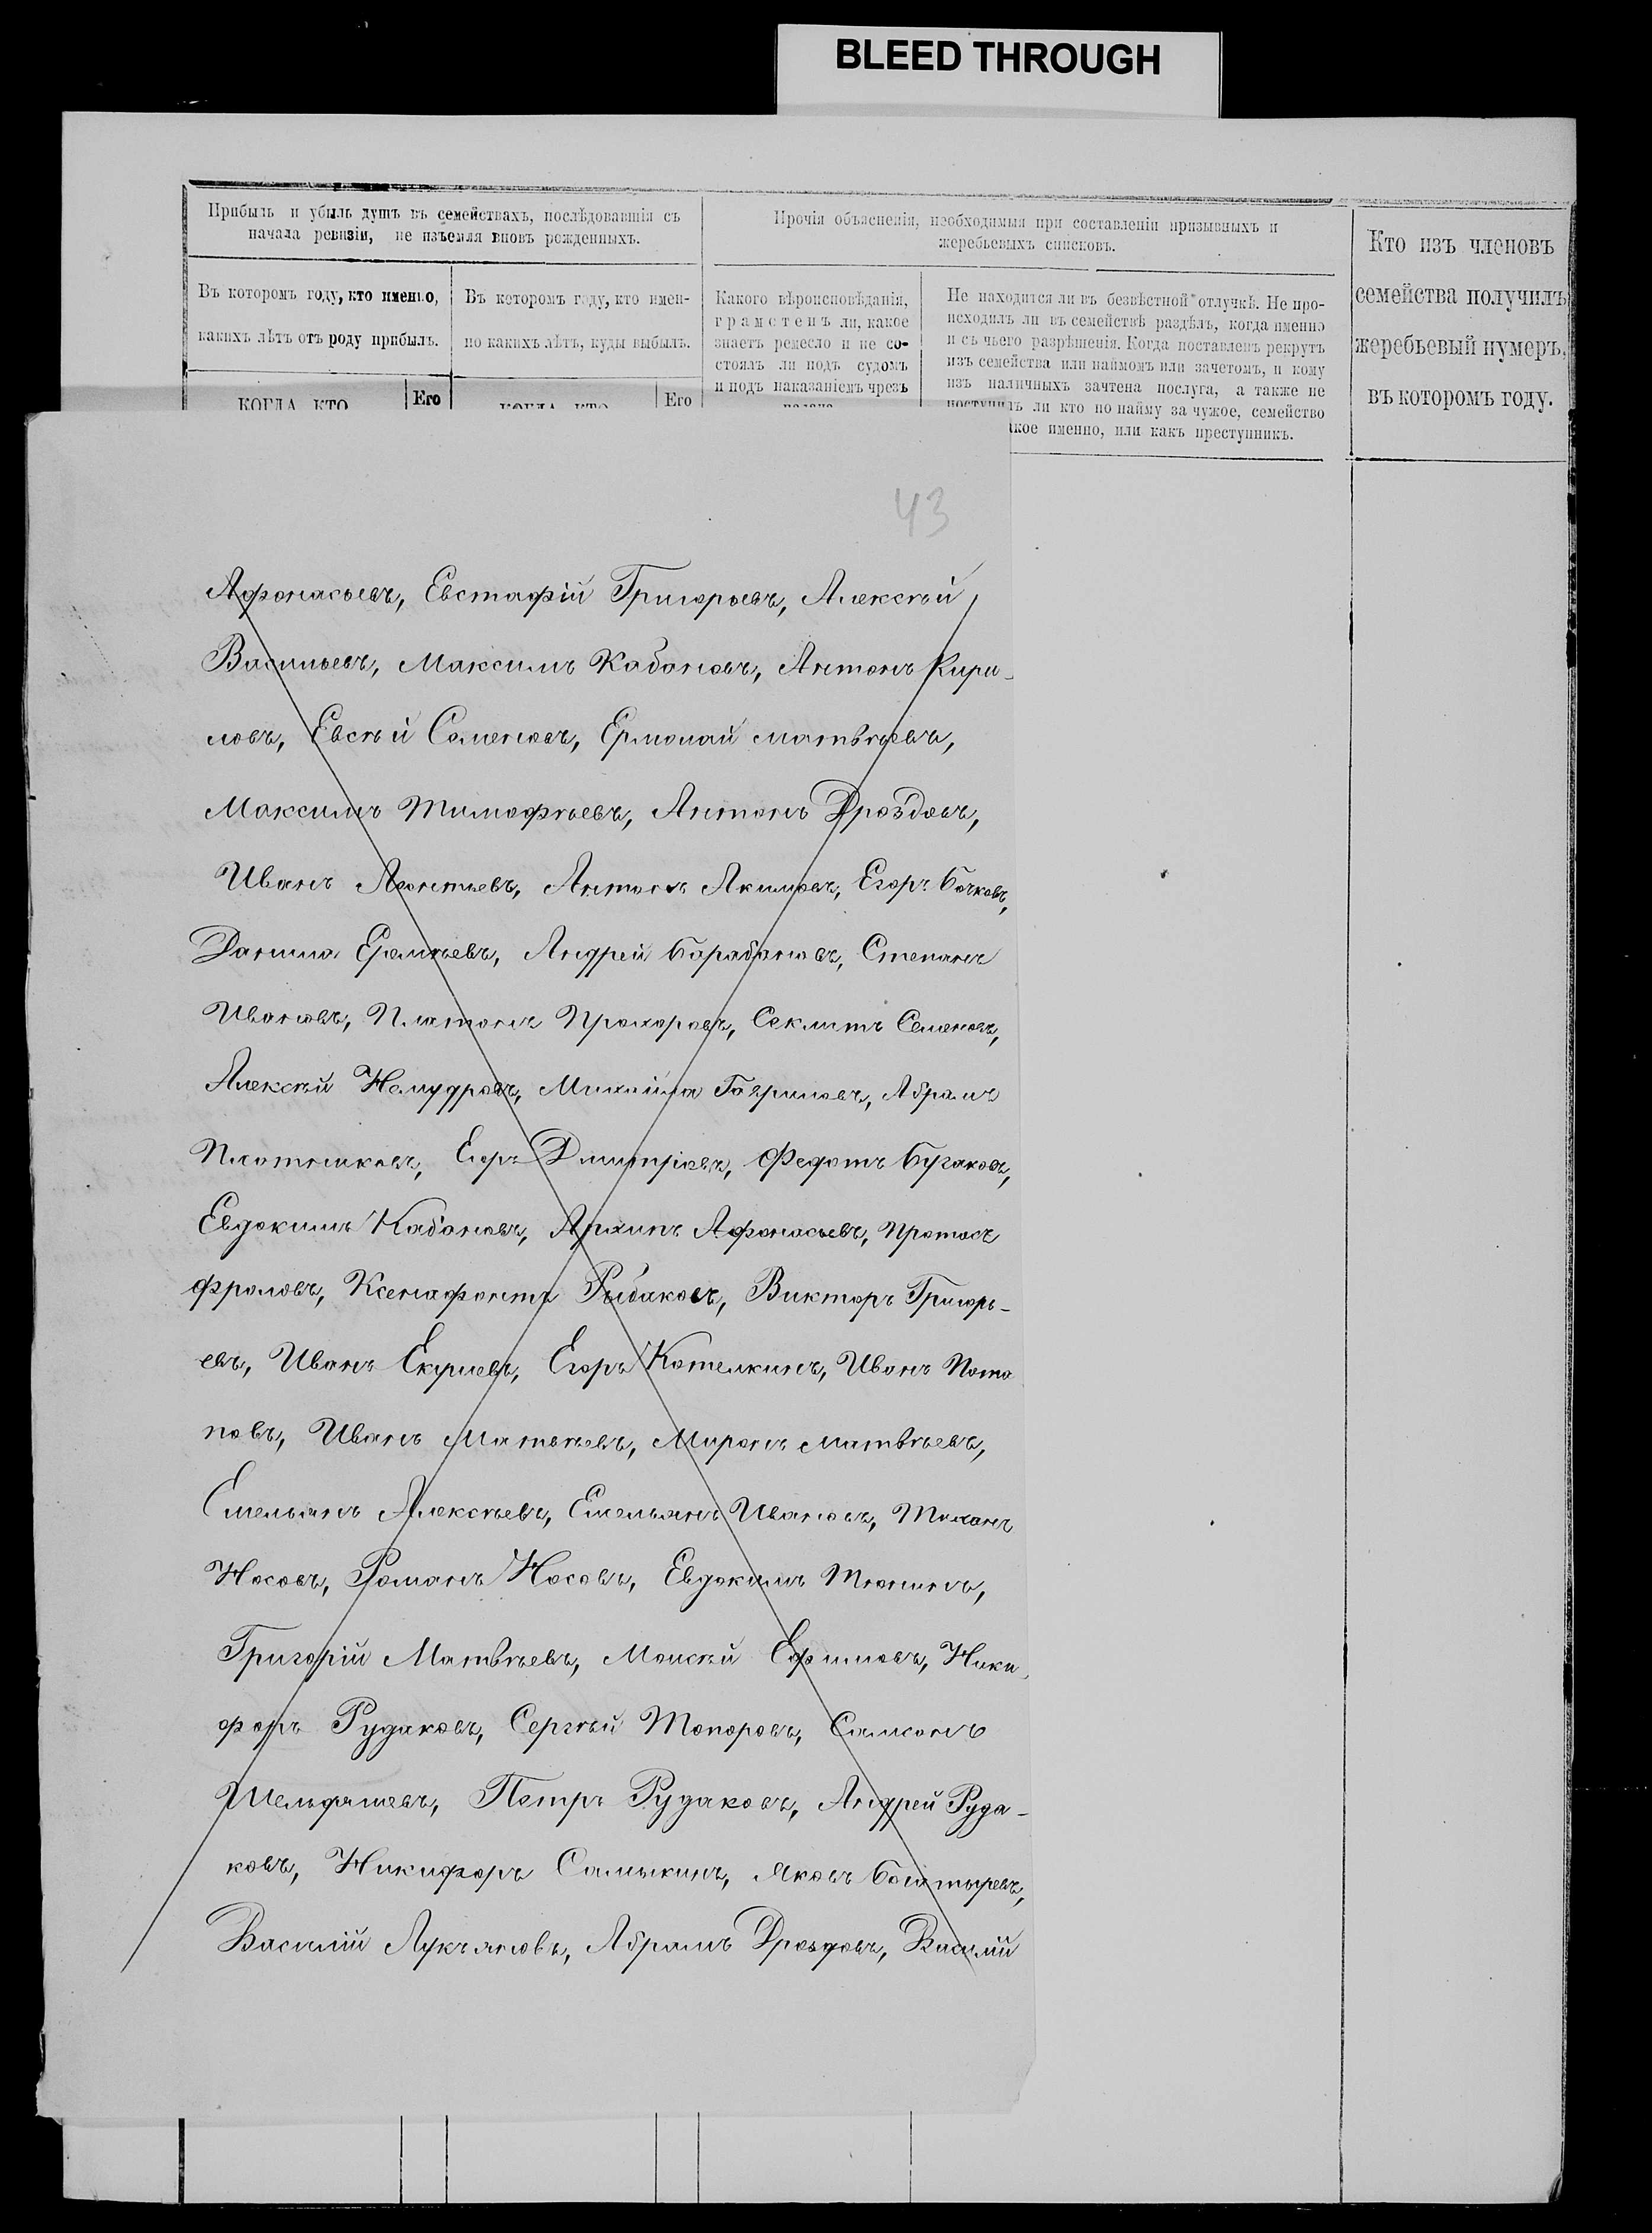 BLEED THROUGH
Прибыль и убыль душъ въ семействахъ, послѣдовавшія съ
начала ревизіи, не изъемля вновь рожденныхъ.
Прочія объясненія, необходимыя при составленіи призывныхъ и
жеребьевыхъ списковъ.
Кто изъ членовъ
семейства получилъ
жеребьевый нумеръ,
въ которомъ году.
Въ которомъ году, кто именно,
какихъ лѣтъ отъ роду прибылъ.
Въ которомъ году, кто имен-
но какихъ лѣтъ, куды выбылъ.
Какого вѣроисповѣданія,
грамотенъ ли, какое
знаетъ ремесло и не со-
стоялъ ли подъ судомъ
и подъ наказаніемъ чрезъ
Не находится ли въ безвѣстной отлучкѣ. Не про-
исходилъ ли въ семействѣ раздѣлъ, когда именно
и съ чьего разрѣшенія. Когда поставленъ рекрутъ
изъ семейства или наймомъ или зачетомъ, и кому
изъ наличныхъ зачтена послуга, а также не
поступилъ ли кто по найму за чужое, семейство
кое именно, или какъ преступникъ.
КОГДА КТО
Его
КОГДА КТО
Его
43
Афонасьевъ, Евстафій Григорьевъ, Алексѣй
Васильевъ, Максимъ Кабановъ, Антонъ Кири-
ловъ, Евсѣй Семеновъ, Ермолай Матвѣевъ,
Максимъ Тимофѣевъ, Антонъ Дроздовъ,
Иванъ Леонтьевъ, Антонъ Акимовъ, Егоръ Бочковъ,
Данила Еремѣевъ, Андрей Барабановъ, Степанъ
Ивановъ, Платонъ Прохоровъ, Семеновъ,
Алексѣй Немудровъ, Михайла Гавриловъ, Абрамъ
Плотниковъ, Егоръ Дмитріевъ, Федотъ Бугаковъ,
Евдокимъ Кабановъ, Архипъ Афонасьевъ, Протасъ
Фроловъ, Ксенофонтъ Рыбаковъ, Викторъ Григорь-
евъ, Иванъ Егоръ Котелкинъ, Иванъ Пота
повъ, Иванъ Матвѣевъ, Миронъ Матвѣевъ,
Емельянъ Алексѣевъ, Емельянъ Ивановъ, Тихонъ
Носовъ, Романъ Носовъ, Евдокимъ Тюнинъ,
Григорій Матвѣевъ, Моисѣй Ефимовъ, Ники
форъ Рудаковъ, Сергѣй Топоровъ, Самсонъ
Петръ Рудаковъ, Андрей Руда-
ковъ, Никифоръ Самыкинъ, Яковъ Богатыревъ,
Василій Лукъяновъ, Абрамъ Дроздовъ, Василій